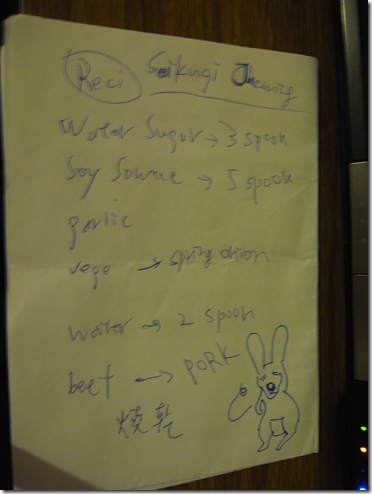 Reci
Water Sugar → 3 spoon
Soy Sowce → 5 spook
garlic
vege → spring onion
water → 2 spoon
beef → PORK
燒乾